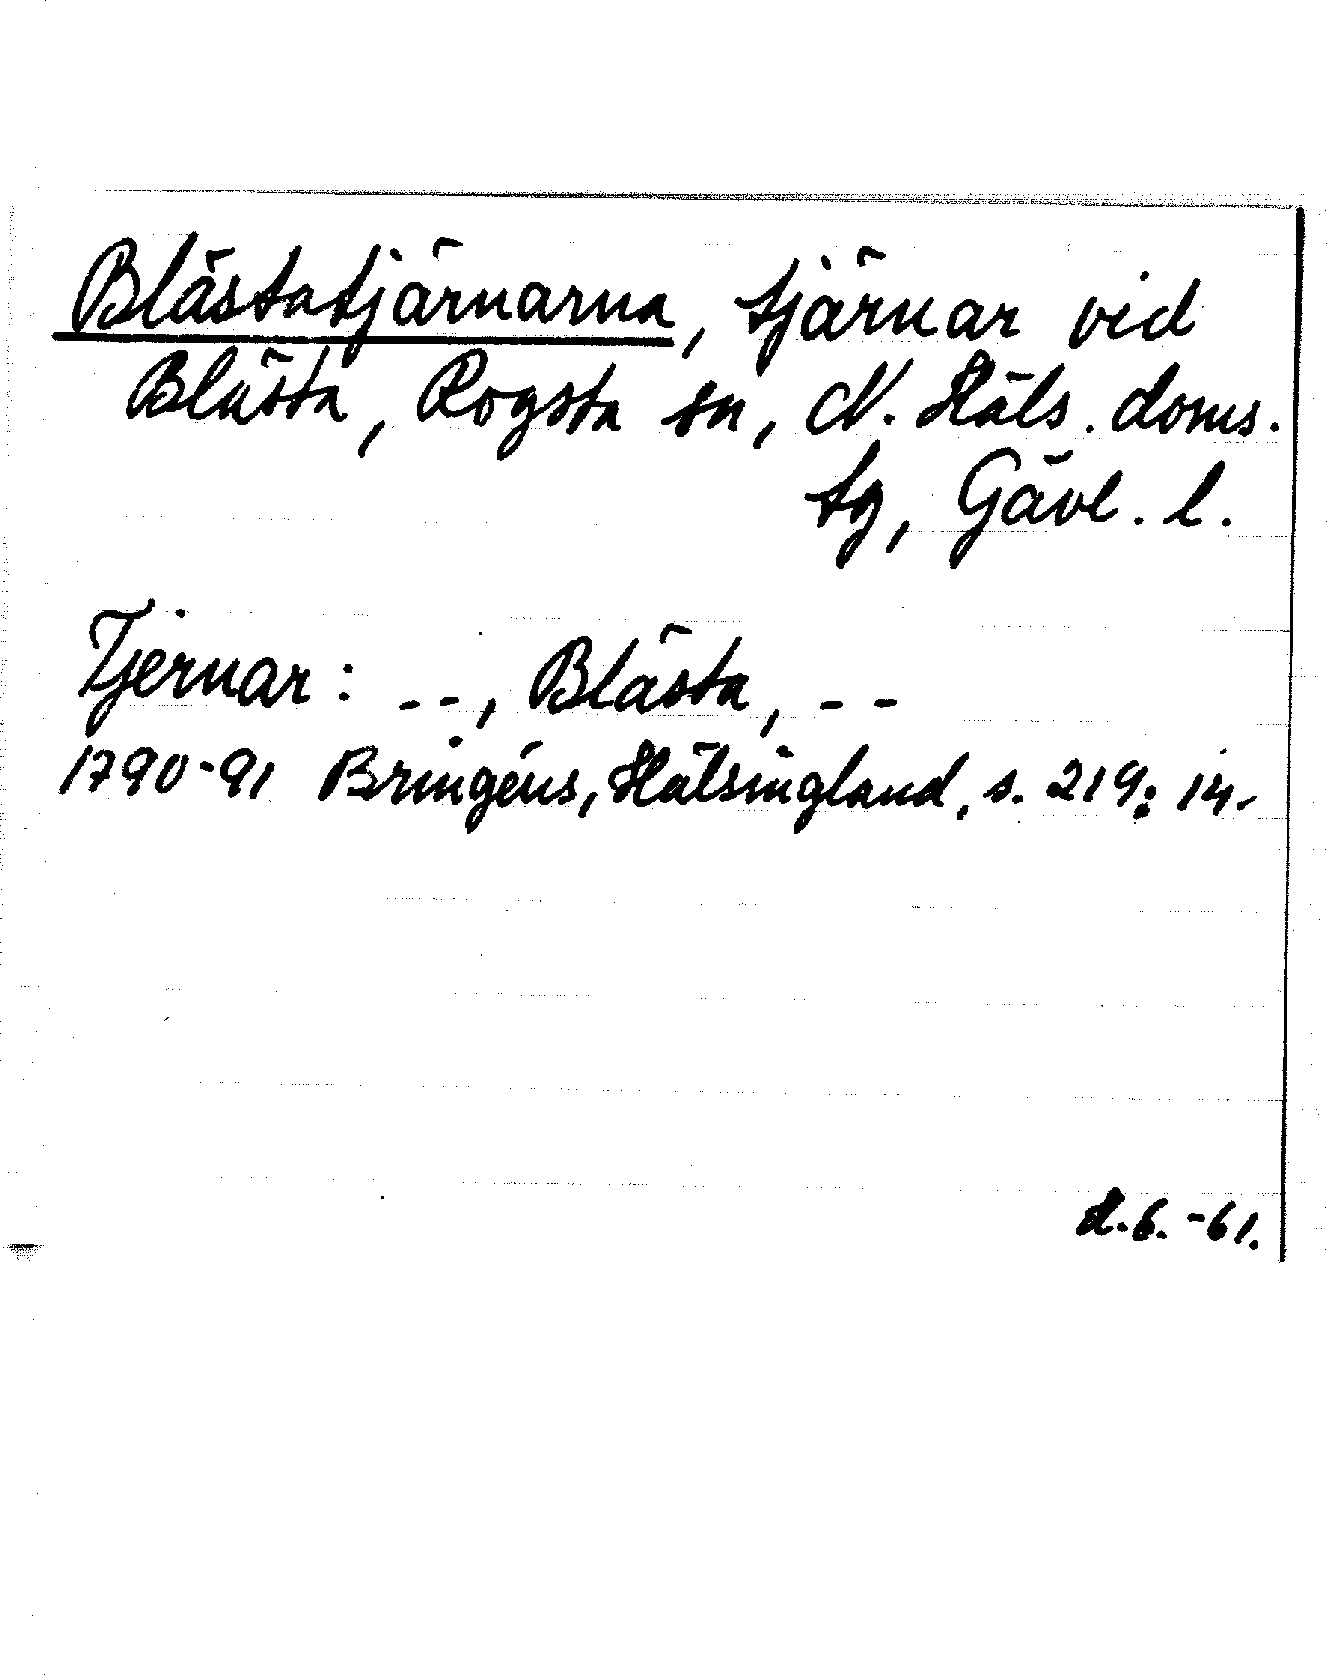 Blästatjärnarna, tjärnar vid
Blästa, Rogsta sn, N. Häls. doms.
tg, Gävl. l.
Tjernar: --, Blästa, --
1790-91 Bringéus, Hälsingland, s. 219: 14.
d. 6. -61.